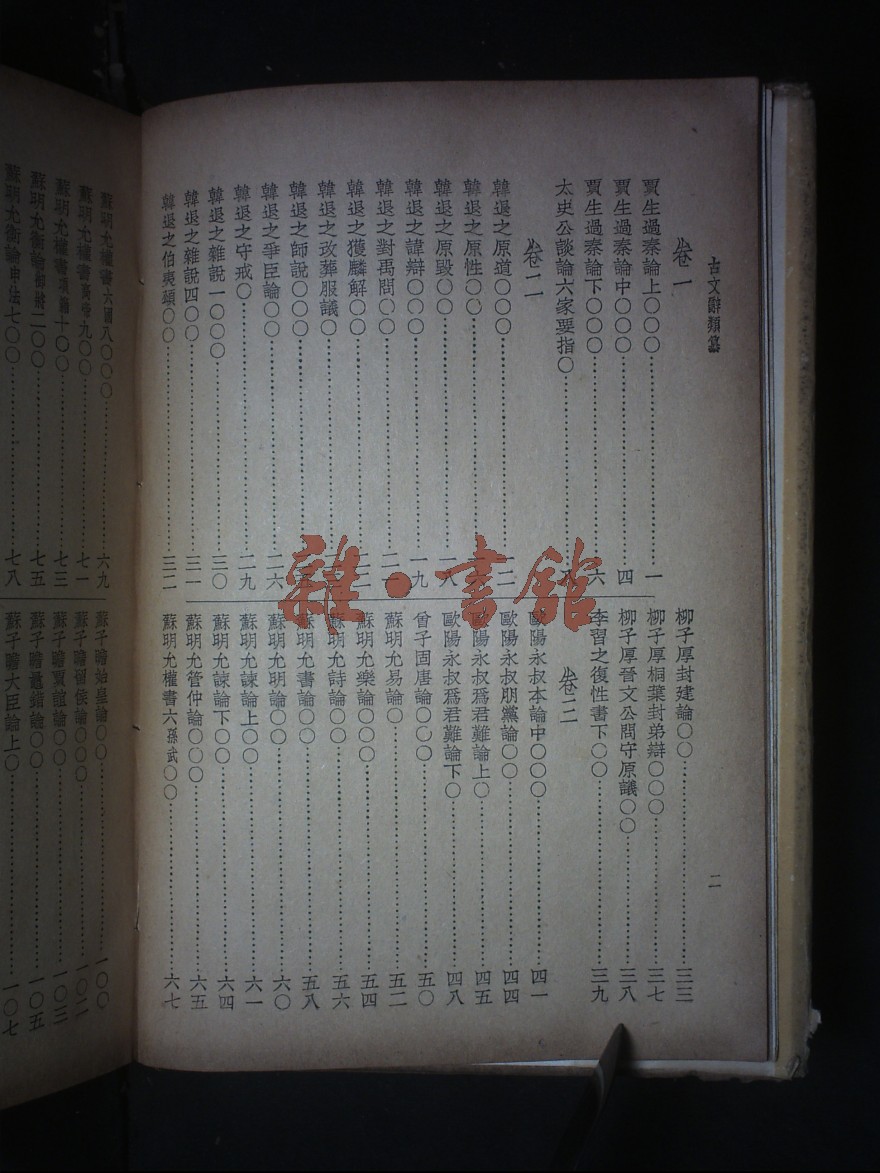 古文辭類纂
二
卷一
賈生過秦論上〇〇〇……一
賈生過秦論中〇〇〇……四
賈生過秦論下〇〇〇……六
太史公談論六家要指〇……八
卷二
韓退之原道〇〇……一二
韓退之原性〇〇……
韓退之原毀〇〇……一八
韓退之諱辯〇〇……一九
韓退之對禹問〇〇……二一
韓退之獲麟解〇〇……二二
韓退之改葬服議〇……
韓退之師說〇〇〇……
韓退之爭臣論〇〇……二六
韓退之守戒〇……二九
韓退之雜說一〇〇〇……三〇
韓退之雜說四〇〇……三一
韓退之伯夷頌〇〇……三二
柳子厚封建論〇〇……三三
柳子厚桐葉封弟辯〇〇〇……三七
柳子厚晉文公問守原議〇〇……三八
李習之復性書下〇〇……三九
卷三
歐陽永叔本論中〇〇〇……四一
歐陽永叔朋黨論〇〇……四四
歐陽永叔爲君難論上〇……四五
歐陽永叔爲君難論下〇……四八
曾子固唐論〇〇〇……五〇
蘇明允易論〇……五二
蘇明允樂論〇〇〇……五四
蘇明允詩論〇〇……五六
蘇明允書論〇〇……五八
蘇明允明論〇〇……六〇
蘇明允諫論上〇〇……六一
蘇明允諫論下〇〇……六四
蘇明允管仲論〇〇〇……六五
蘇明允權書六孫武〇〇……六七
蘇明允權書六國八〇〇〇……六九
蘇明允權書九〇〇……七一
蘇明允權書項籍十〇〇……七三
蘇明允衡論御將二〇〇……七五
蘇明允衡論申法七〇〇……七八
蘇子瞻始皇論〇〇……一〇〇
蘇子瞻留侯論〇〇〇……一〇二
蘇子瞻賈誼論〇〇……一〇三
蘇子瞻鼂錯論〇〇……一〇五
蘇子瞻大臣論上〇……一〇七
雜·書館